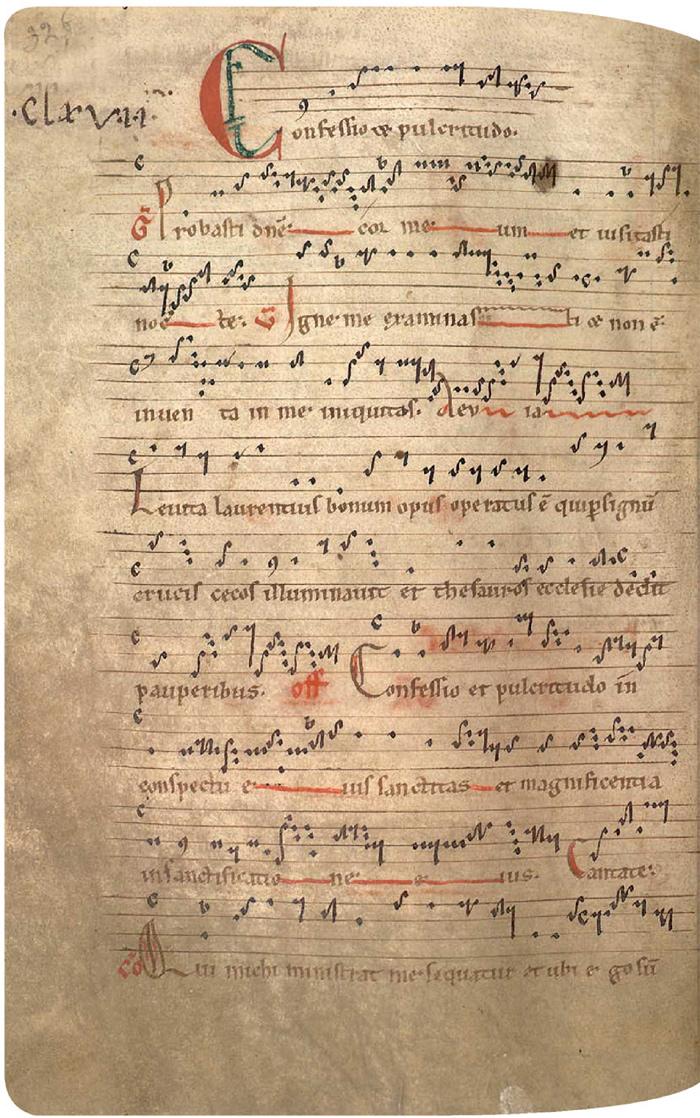 326
·clxvii·
Confessio et pulcritudo.
G Probasti dne cor me um et uisitasti
noc te. V Igne me examinas ti et non e
inuen ta in me iniquitas. Aeu ia
Leuita laurentius bonum opus operatus e qui p signu
crucis cecos illuminauit et thesauros ecclesie dedit
pauperibus. off Confessio et pulcritudo in
conspectu e ius sanctitas et magnificentia
in sanctificatio ne e ius. Cantate.
co Qui michi ministrat me sequatur et ubi ego su